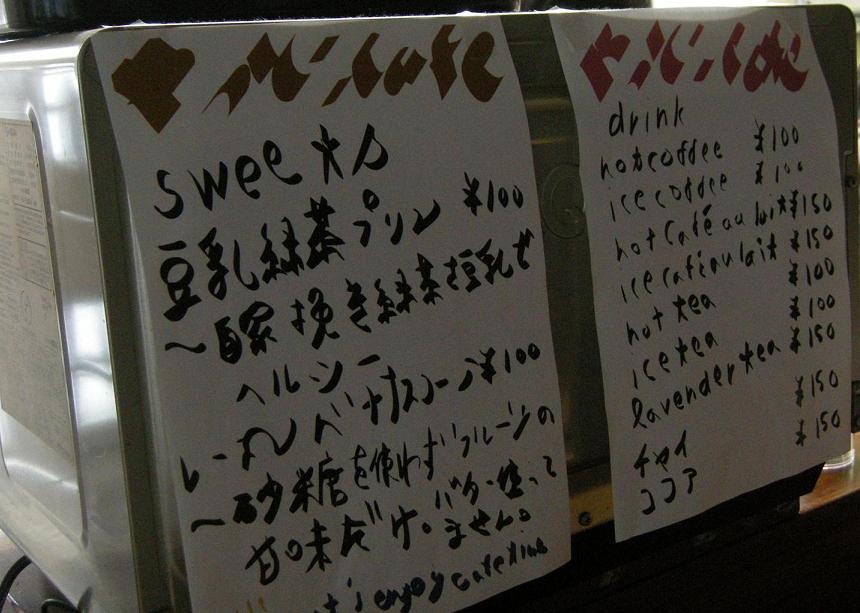 sweets
豆乳緑茶プリン ¥100
〜自家挽き緑茶と豆乳で
ヘルシー
レーズンバナナスコーン ¥100
〜砂糖を使わずフルーツの
甘味だけ。バター使って
ません。
enjoy cafetime
drink
hot coffee ¥100
ice coffee ¥100
hot café au lait ¥150
ice café au lait ¥150
hot tea ¥100
ice tea ¥100
lavender tea ¥150
チャイ ¥150
ココア ¥150